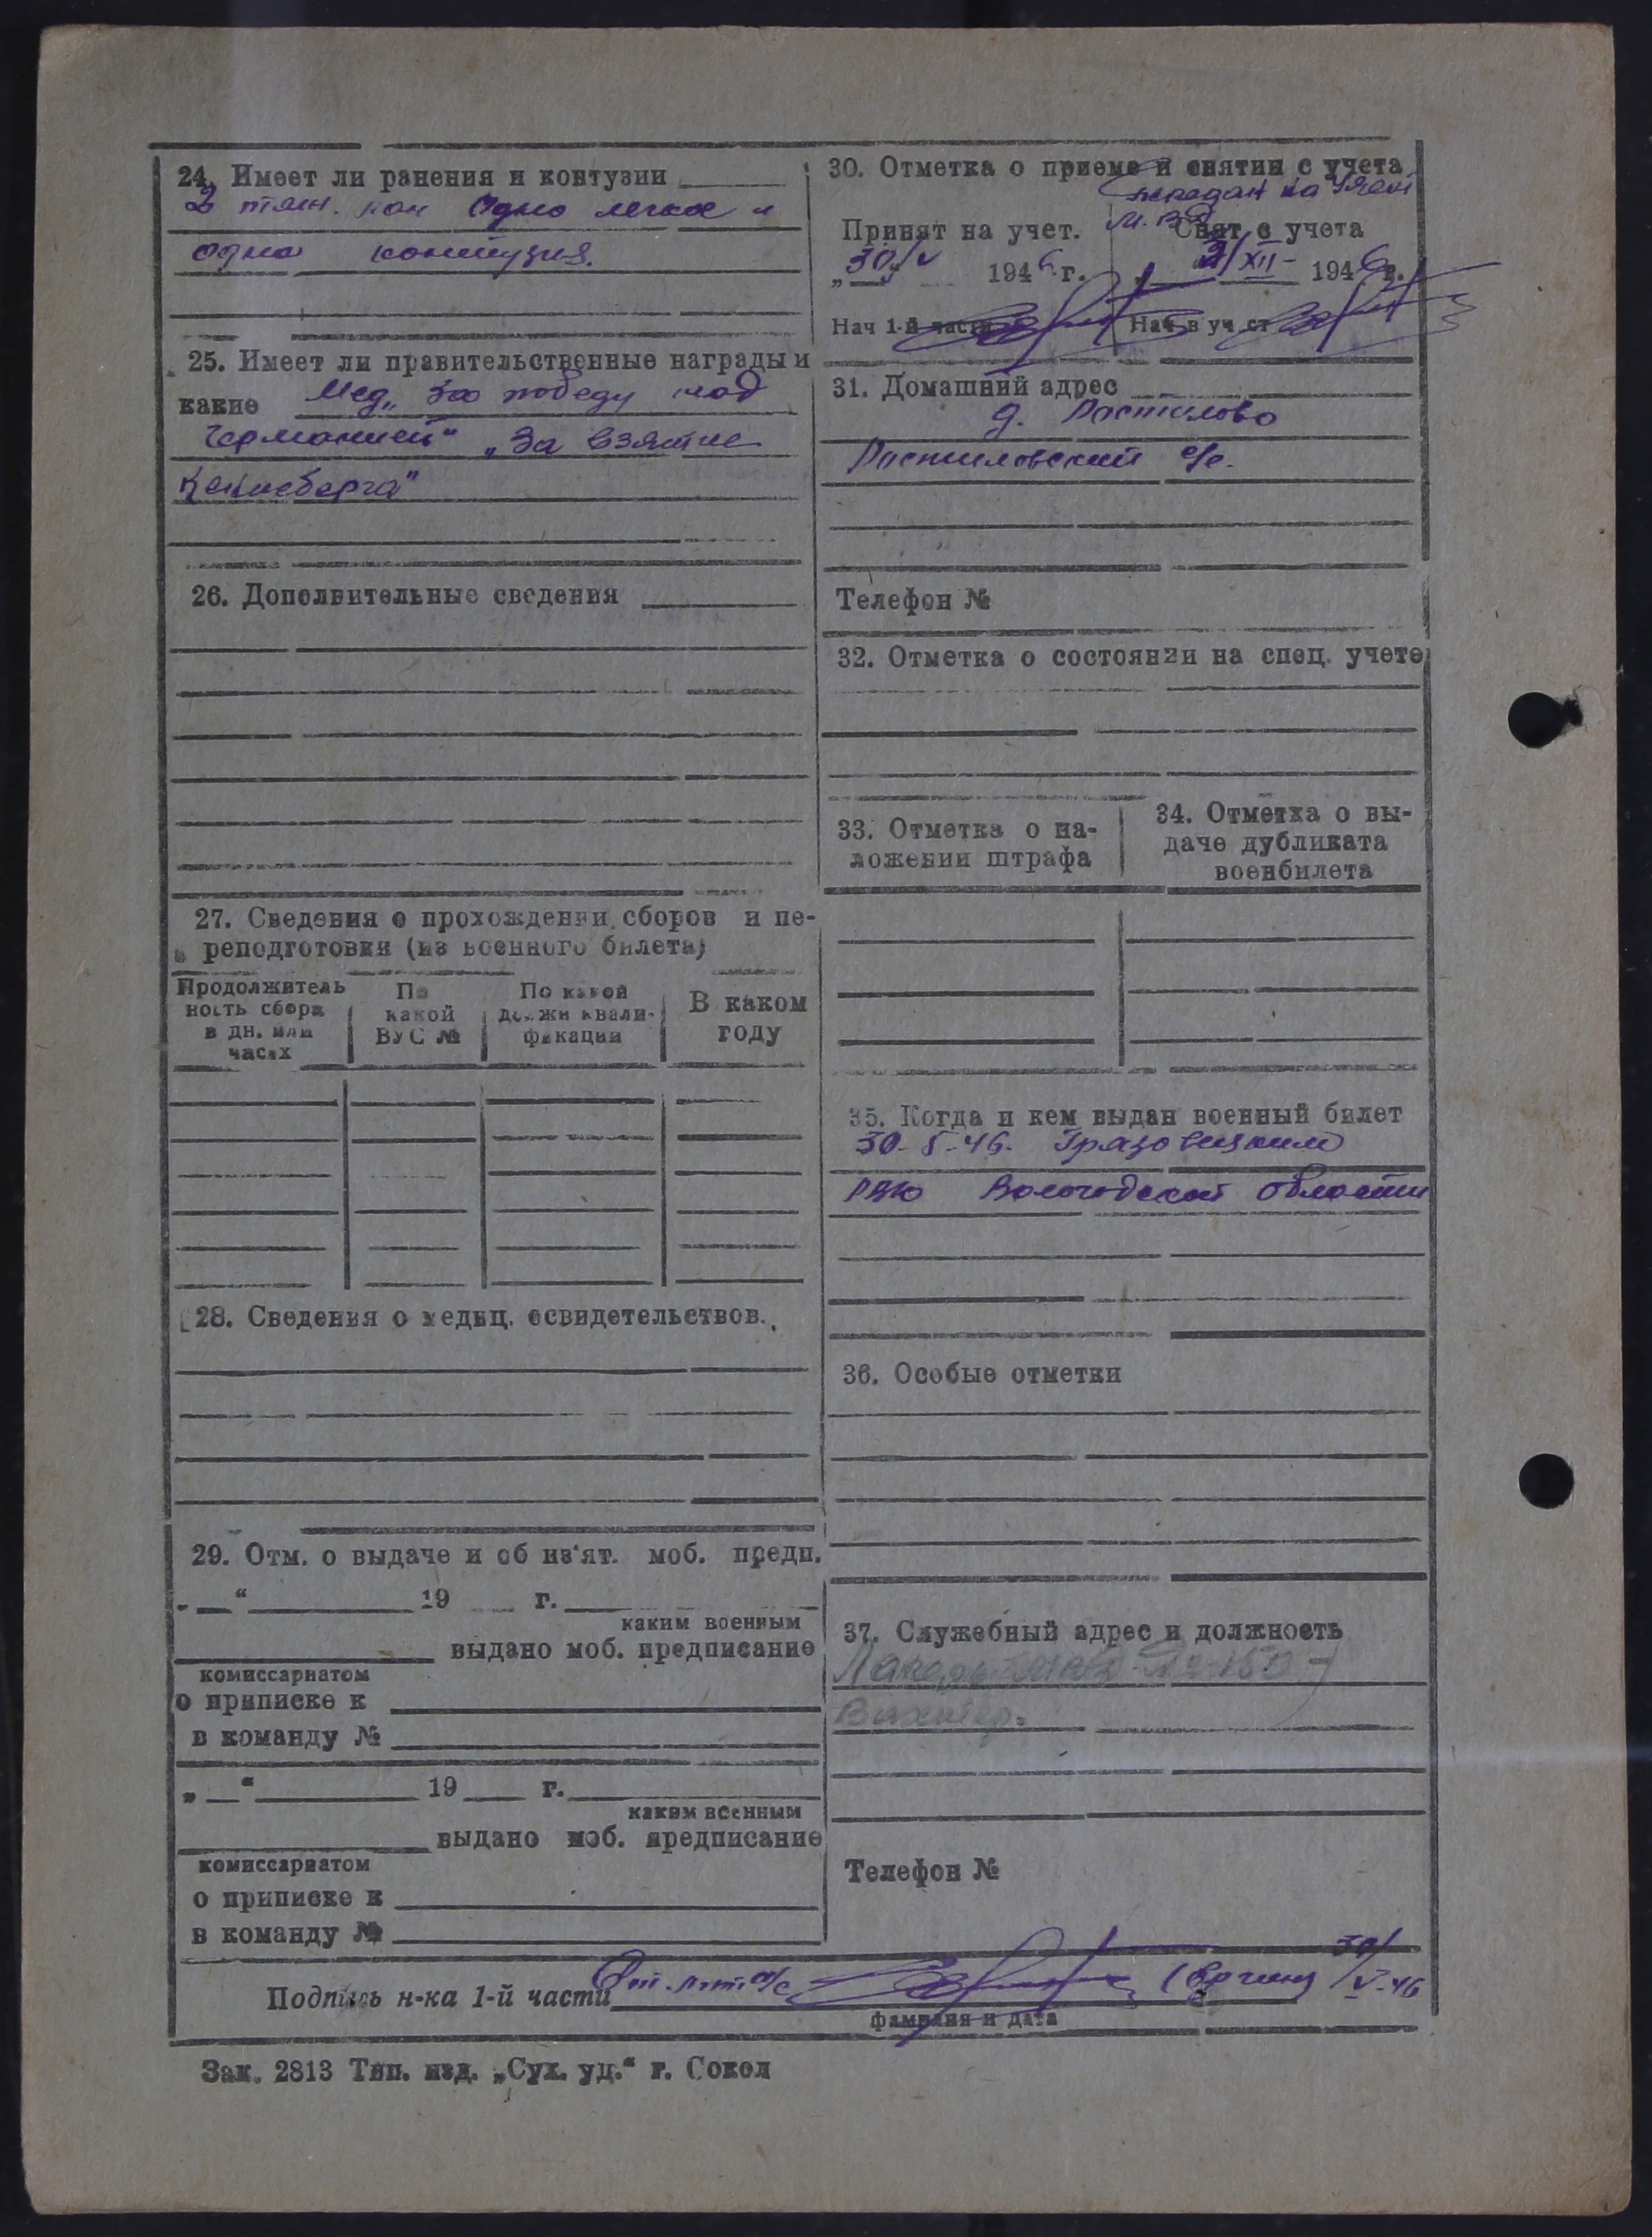 24. Имеет ли ранения и контузии
2 тяж. ран одно легкое и
одна контузия.
25. Имеет ли правительственные награды и
какие Мед. „За победу над
Германией“ „За взятие
Кенигсберга“
26. Дополнительные сведения
27. Сведения о прохождении сборов и пе-
реподготовки (из военного билета)
Продолжитель
ность сбора
в дн. или
часах
По
какой
ВУС №
По какой
должн квали-
фикации
В каком
году
28. Сведения о медиц. освидетельствов.
29. Отм. о выдаче и об из'ят. моб. предп.
„ “ 19 г.
каким военным
выдано моб. предписание
комиссариатом
о приписке к
в команду №
„ “ 19 г.
каким военным
выдано моб. предписание
комиссариатом
о приписке к
в команду №
30. Отметка о приеме и снятии с учета
передан на
Принят на учет. Снят с учета
„30/V 1946 г. 2/XII- 1946 г.
Нач 1-й части Нач в уч ст
31. Домашний адрес
д. Ростилово
Ростиловский с/с.
Телефон №
32. Отметка о состоянии на спец. учете
33. Отметка о на-
ложении штрафа
34. Отметка о вы-
даче дубликата
военбилета
35. Когда и кем выдан военный билет
30-5-46. Грязовецким
РВК Вологодской области
36. Особые отметки
37. Служебный адрес и должность
Лагерь МВД № 150
Вахтер.
Телефон №
Подпись н-ка 1-й части 30/V-46
фамилия и дата
Зак. 2813 Тип. изд. „Сух. уд.“ г. Сокол